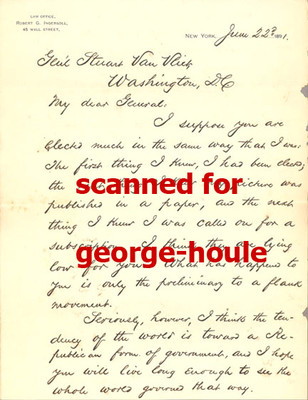 LAW OFFICE,
ROBERT G. INGERSOLL,
45 WALL STREET,
NEW YORK, June 22ᵈ 1891.
Gen'l Stewart Van Vliet
Washington, D.C
My dear General:
I suppose you are
elected much in the same way that I was.
The first thing I knew, I had been elected;
the
scanned for
picture was
published in a paper, and the next
thing I knew I was called on for a
subscription. I think they are lying
george-houle
low for you. What has happened to
you is only the preliminary to a flank
movement.
Seriously, however, I think the ten-
dency of the world is toward a Re-
publican form of government, and I hope
you will live long enough to see the
whole world governed that way.